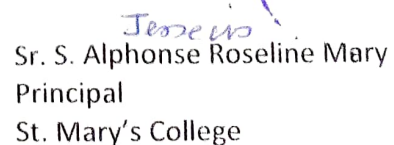 Sr. S. Alphonse Roseline Mary
Principal
St. Mary's College